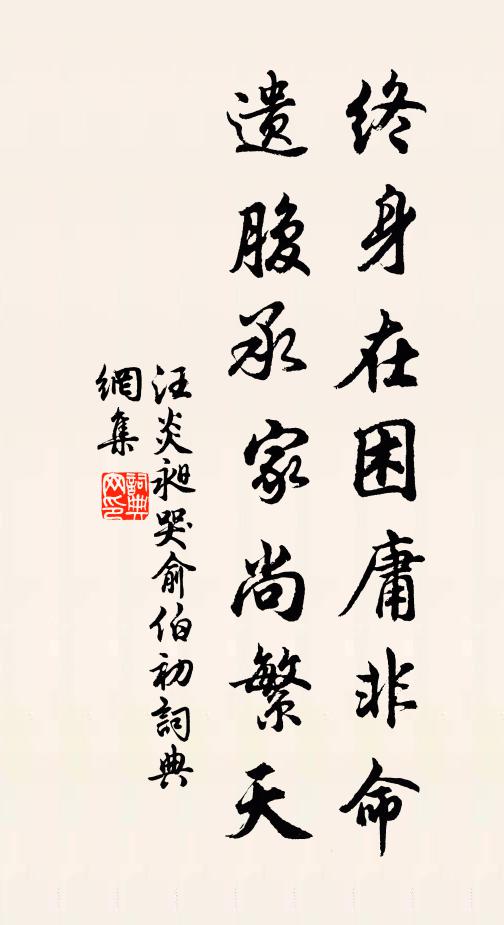 终身在困庸非命
遗腹承家尚繁天
汪炎昶哭俞伯初詞典
網集
詞典
网印